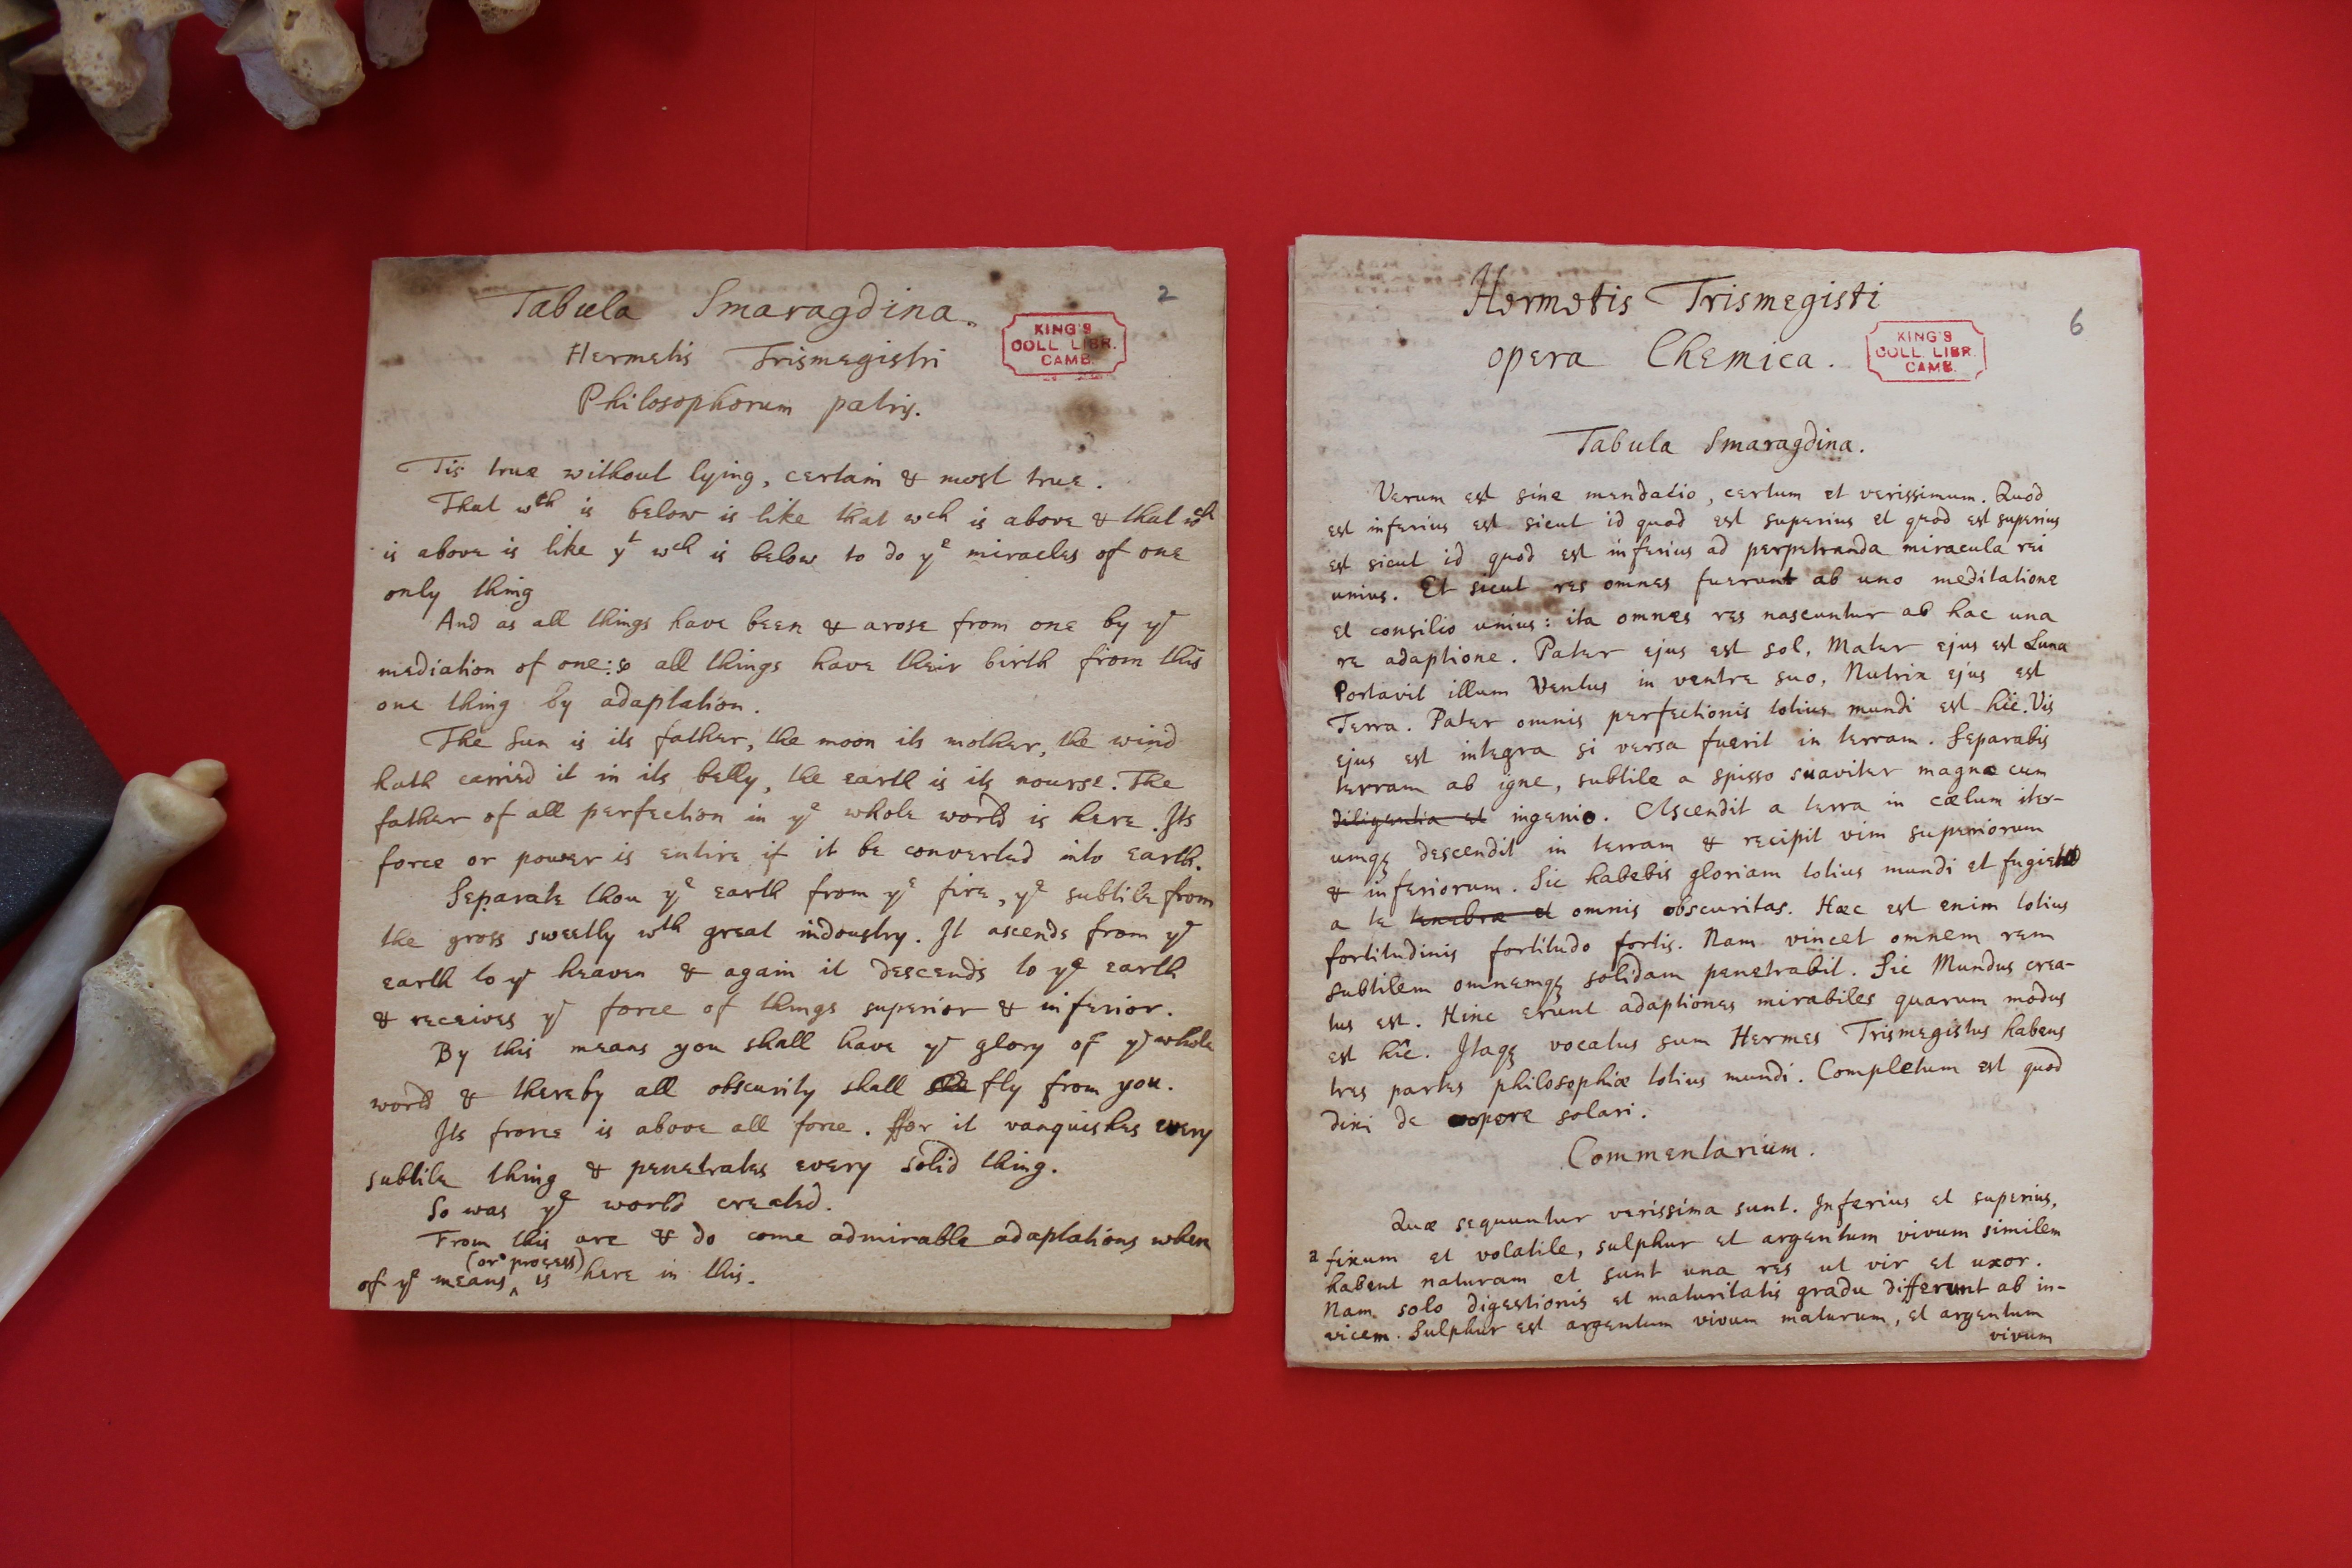 Tabula Smaragdina.
2
KING'S
COLL. LIBR.
CAMB.
Hermetis Trismegistri
Philosophorum patris.
Tis true without lying, certain & most true.
That wch is below is like that wch is above & that wch
is above is like yt wch is below to do ye miracles of one
only thing
And as all things have been & arose from one by ye
mediation of one: so all things have their birth from this
one thing by adaptation.
The Sun is its father, the moon its mother, the wind
hath carried it in its belly, the earth is its nourse. The
father of all perfection in ye whole world is here. Its
force or power is entire if it be converted into earth.
Separate thou ye earth from ye fire, ye subtile from
the gross sweetly wth great indoustry. It ascends from ye
earth to ye heaven & again it descends to ye earth
& receives ye force of things superior & inferior.
By this means you shall have ye glory of ye whole
world & thereby all obscurity shall fly from you.
Its frorce is above all force. ffor it vanquishes every
subtile thing & penetrates every solid thing.
So was ye world created.
From this are & do come admirable adaptations when
(or process)
of ye means ‸ is here in this.
Hermetis Trismegisti
6
opera Chemica.
KING'S
COLL. LIBR.
CAMB.
Tabula Smaragdina.
Verum est sine mendatio, certum et verissimum. Quod
est inferius est sicut id quod est superius et quod est superius
est sicut id quod est inferius ad perpetranda miracula rei
unius. Et sicut res omnes fuerunt ab uno meditatione
et consilio unius: ita omnes res nascuntur ab hac una
re adaptione. Pater ejus est sol, Mater ejus est Luna
Portavit illum Ventus in ventre suo, Nutrix ejus est
Terra. Pater omnis perfectionis totius mundi est hîc. Vis
ejus est integra si versa fuerit in terram. Separabis
terram ab igne, subtile a spisso suaviter magno cum
diligentia et ingenio. Ascendit a terra in cælum iter-
umqȝ descendit in terram & recipit vim superiorum
& inferiorum. Sic habebis gloriam totius mundi et fugiet
a te tenebræ et omnis obscuritas. Hæc est enim totius
fortitudinis fortitudo fortis. Nam vincet omnem rem
subtilem omnemqȝ solidam penetrabit. Sic Mundus crea-
tus est. Hinc erunt adaptiones mirabiles quarum modus
est hîc. Itaqȝ vocatus sum Hermes Trismegistus habens
tres partes philosophiæ totius mundi. Completum est quod
dixi de opere solari.
Commentarium.
Quæ sequuntur verissima sunt. Inferius et superius,
a fixum et volatile, sulphur et argentum vivum similem
habent naturam et sunt una res ut vir et uxor.
Nam solo digestionis et maturitatis gradu differunt ab in-
vicem. Sulphur est argentum vivum maturum, et argentum
vivum